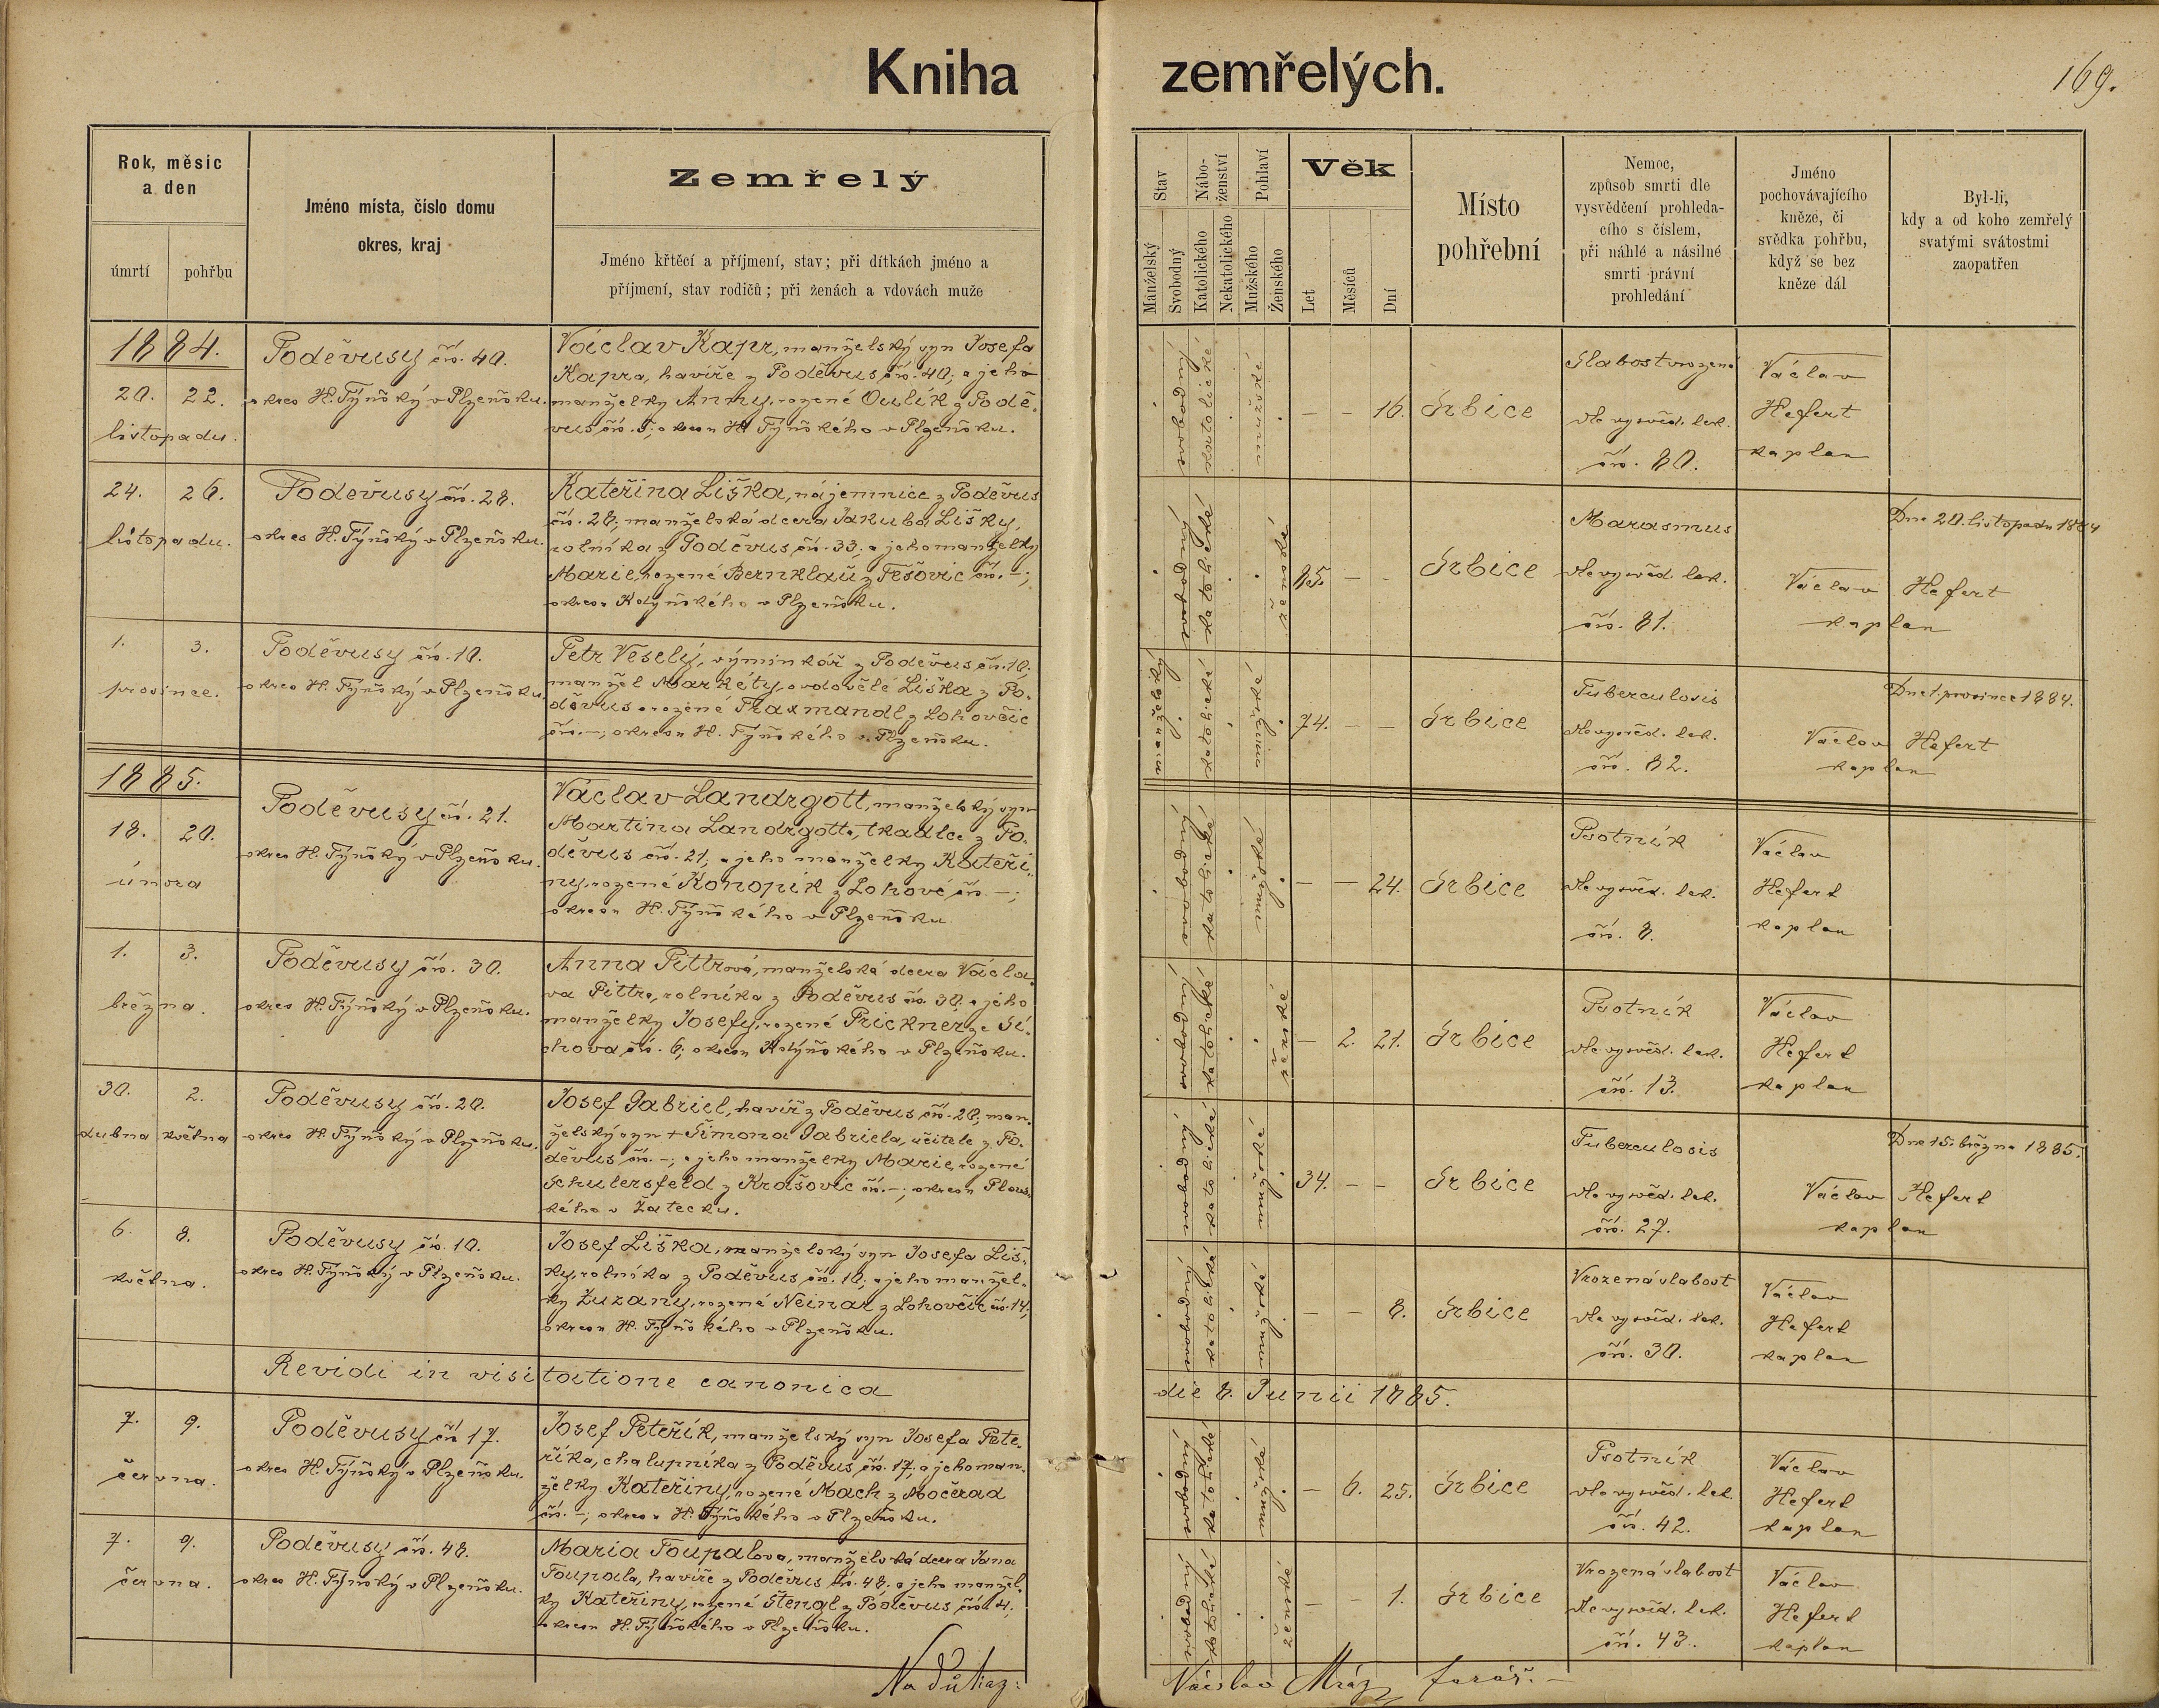 Kniha zemřelých.
169.
Rok, měsíc
a den
úmrtí
pohřbu
Jméno místa, číslo domu
okres, kraj
Zemřelý
Jméno křtěcí a příjmení, stav; při dítkách jméno a
příjmení, stav rodičů; při ženách a vdovách muže
Stav
Manželský
Svobodný
Nábo-
ženství
Katolického
Nekatolického
Pohlaví
Mužského
Ženského
Věk
Let
Měsíců
Dní
Místo
pohřební
Nemoc,
způsob smrti dle
vysvědčení prohleda-
cího s číslem,
při náhlé a násilné
smrti právní
prohledání
Jméno
pochovávajícího
kněze, či
svědka pohřbu,
když se bez
kněze dál
Byl-li,
kdy a od koho zemřelý
svatými svátostmi
zaopatřen
1884.
20. 22.
listopadu.
Poděvusy čís. 40.
okres H. Týňský v Plzeňsku.
Václav Kapr, manželský syn Josefa
Kapra, havíře z Poděvus čís. 40; a jeho
manželky Anny, rozené Oulík z Podě-
vus čís. 5; okresu H. Týňského v Plzeňsku.
svobodný
katolické
mužské
– – 16.
Srbice
Slabost vrozená
dle vysvěd. lek.
čís. 80.
Václav
Hefert
kaplan
24. 26.
listopadu.
Poděvusy čís. 28.
okres H. Týňský v Plzeňsku.
Kateřina Liška, nájemnice z Poděvus
čís. 28; manželská dcera Jakuba Lišky,
rolníka z Poděvus čís. 33; a jeho manželky
Marie, rozené Bernklau z Těšovic čís. –;
okresu Kdyňského v Plzeňsku.
svobodný
katolické
ženské
85. – –
Srbice
Marasmus
dle vysvěd. lek.
čís. 81.
Dne 20. listopadu 1884
Václav Hefert
kaplan
1. 3.
prosince.
Poděvusy čís. 10.
okres H. Týňský v Plzeňsku.
Petr Veselý, výminkář z Poděvus čís. 10;
manžel Markéty, ovdovělé Liška z Po-
děvus a rozené Traxmandl z Lohovčic
čís. –; okresu H. Týňského v Plzeňsku.
manželský
katolické
mužské
74. – –
Srbice
Tuberculosis
dle vysvěd. lek.
čís. 82.
Dne 1. prosince 1884.
Václav Hefert
kaplan
1885.
18. 20.
února
Poděvusy čís. 21.
okres H. Týňský v Plzeňsku.
Václav Landrgott, manželský syn
Martina Landrgotta, tkadlce z Po-
děvus čís. 21; a jeho manželky Kateři-
ny, rozené Konopík z Lohové čís. –;
okresu H. Týňského v Plzeňsku.
svobodný
katolické
mužské
– – 24.
Srbice
Psotník
dle vysvěd. lek.
čís. 8.
Václav
Hefert
kaplan
1. 3.
března.
Poděvusy čís. 30.
okres H. Týňský v Plzeňsku.
Anna Pittrová, manželská dcera Václa-
va Pittra, rolníka z Poděvus čís. 30. a jeho
manželky Josefy, rozené Prickner ze Si-
chova čís. 6; okresu Kdyňského v Plzeňsku.
svobodný
katolické
ženské
– 2. 21.
Srbice
Psotník
dle vysvěd. lek.
čís. 13.
Václav
Hefert
kaplan
30. 2.
dubna května
Poděvusy čís. 20.
okres H. Týňský v Plzeňsku.
Josef Gabriel, havíř z Poděvus čís. 20; man-
želský syn + Šimona Gabriela, učitele z Po-
děvus čís. –; a jeho manželky Marie, rozené
Schulersfeld z Krašovic čís. –; okresu
kého v Žatecku.
svobodný
katolické
mužské
34. – –
Srbice
Tuberculosis
dle vysvěd. lek.
čís. 27.
Dne 15. března 1885.
Václav Hefert
kaplan
6. 8.
května.
Poděvusy čís. 10.
okres H. Týňský v Plzeňsku.
Josef Liška, manželský syn Josefa Liš-
ky, rolníka z Poděvus čís. 10; a jeho manžel-
ky Zuzany, rozené Neinar z Lohovčic čís. 14;
okresu H. Týňského v Plzeňsku.
svobodný
katolické
mužské
– – 8.
Srbice
Vrozená slabost
dle vysvěd. lek.
čís. 30.
Václav
Hefert
kaplan
Revidi in visitatione canonica die 8. Junii 1885.
7. 9.
června.
Poděvusy čís 17.
okres H. Týňský v Plzeňsku.
Josef Peteřík, manželský syn Josefa Pete-
říka, chalupníka z Poděvus čís. 17; a jeho man-
želky Kateřiny, rozené Mach z Močerad
čís. –; okresu H. Týňského v Plzeňsku.
svobodný
katolické
mužské
– 6. 25.
Srbice
Psotník
dle vysvěd. lek.
čís. 42.
Václav
Hefert
kaplan
7. 9.
června.
Poděvusy čís. 48.
okres H. Týnský v Plzeňsku.
Maria Toupalova, manželská dcera Jana
Toupala, havíře z Poděvus čís. 48; a jeho manžel-
ky Kateřiny, rozené Štengl z Poděvus čís. 4;
okresu H. Týňského v Plzeňsku.
svobodný
katolické
ženské
– – 1.
Srbice
Vrozená slabost
dle vysvěd. lek.
čís. 43.
Václav
Hefert
kaplan
Na důkaz:
Václav Mráz farář.